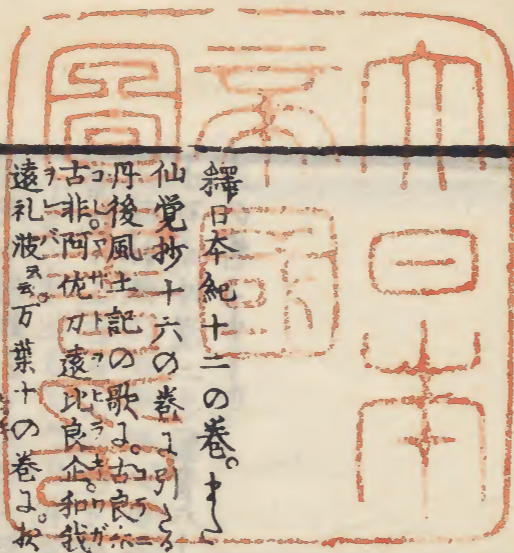 大日本
帝國
圖書印
釋日本紀十二の巻。また
仙覚抄十六の巻に引たる
丹後風土記の歌に。古良尓
古非阿佐刀遠比良企和我
遠礼波云々。万葉十の巻に。